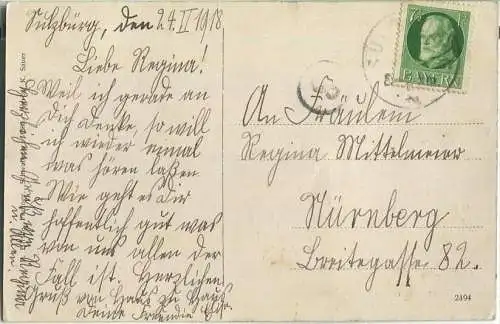 Sulzbürg, den 24.II 1918
Liebe Regina!
Weil ich gerade an
Dich denke, so will
ich wieder einmal
was hören laßen.
Wie geht es Dir
hoffentlich gut was
von uns allen der
Fall ist. Herzlichen
Gruß von Haus zu Haus
Deine Freundin
An Fräulein
Regina Mittelmeier
Nürnberg
Breitegasse 82.
BAYERN
2494